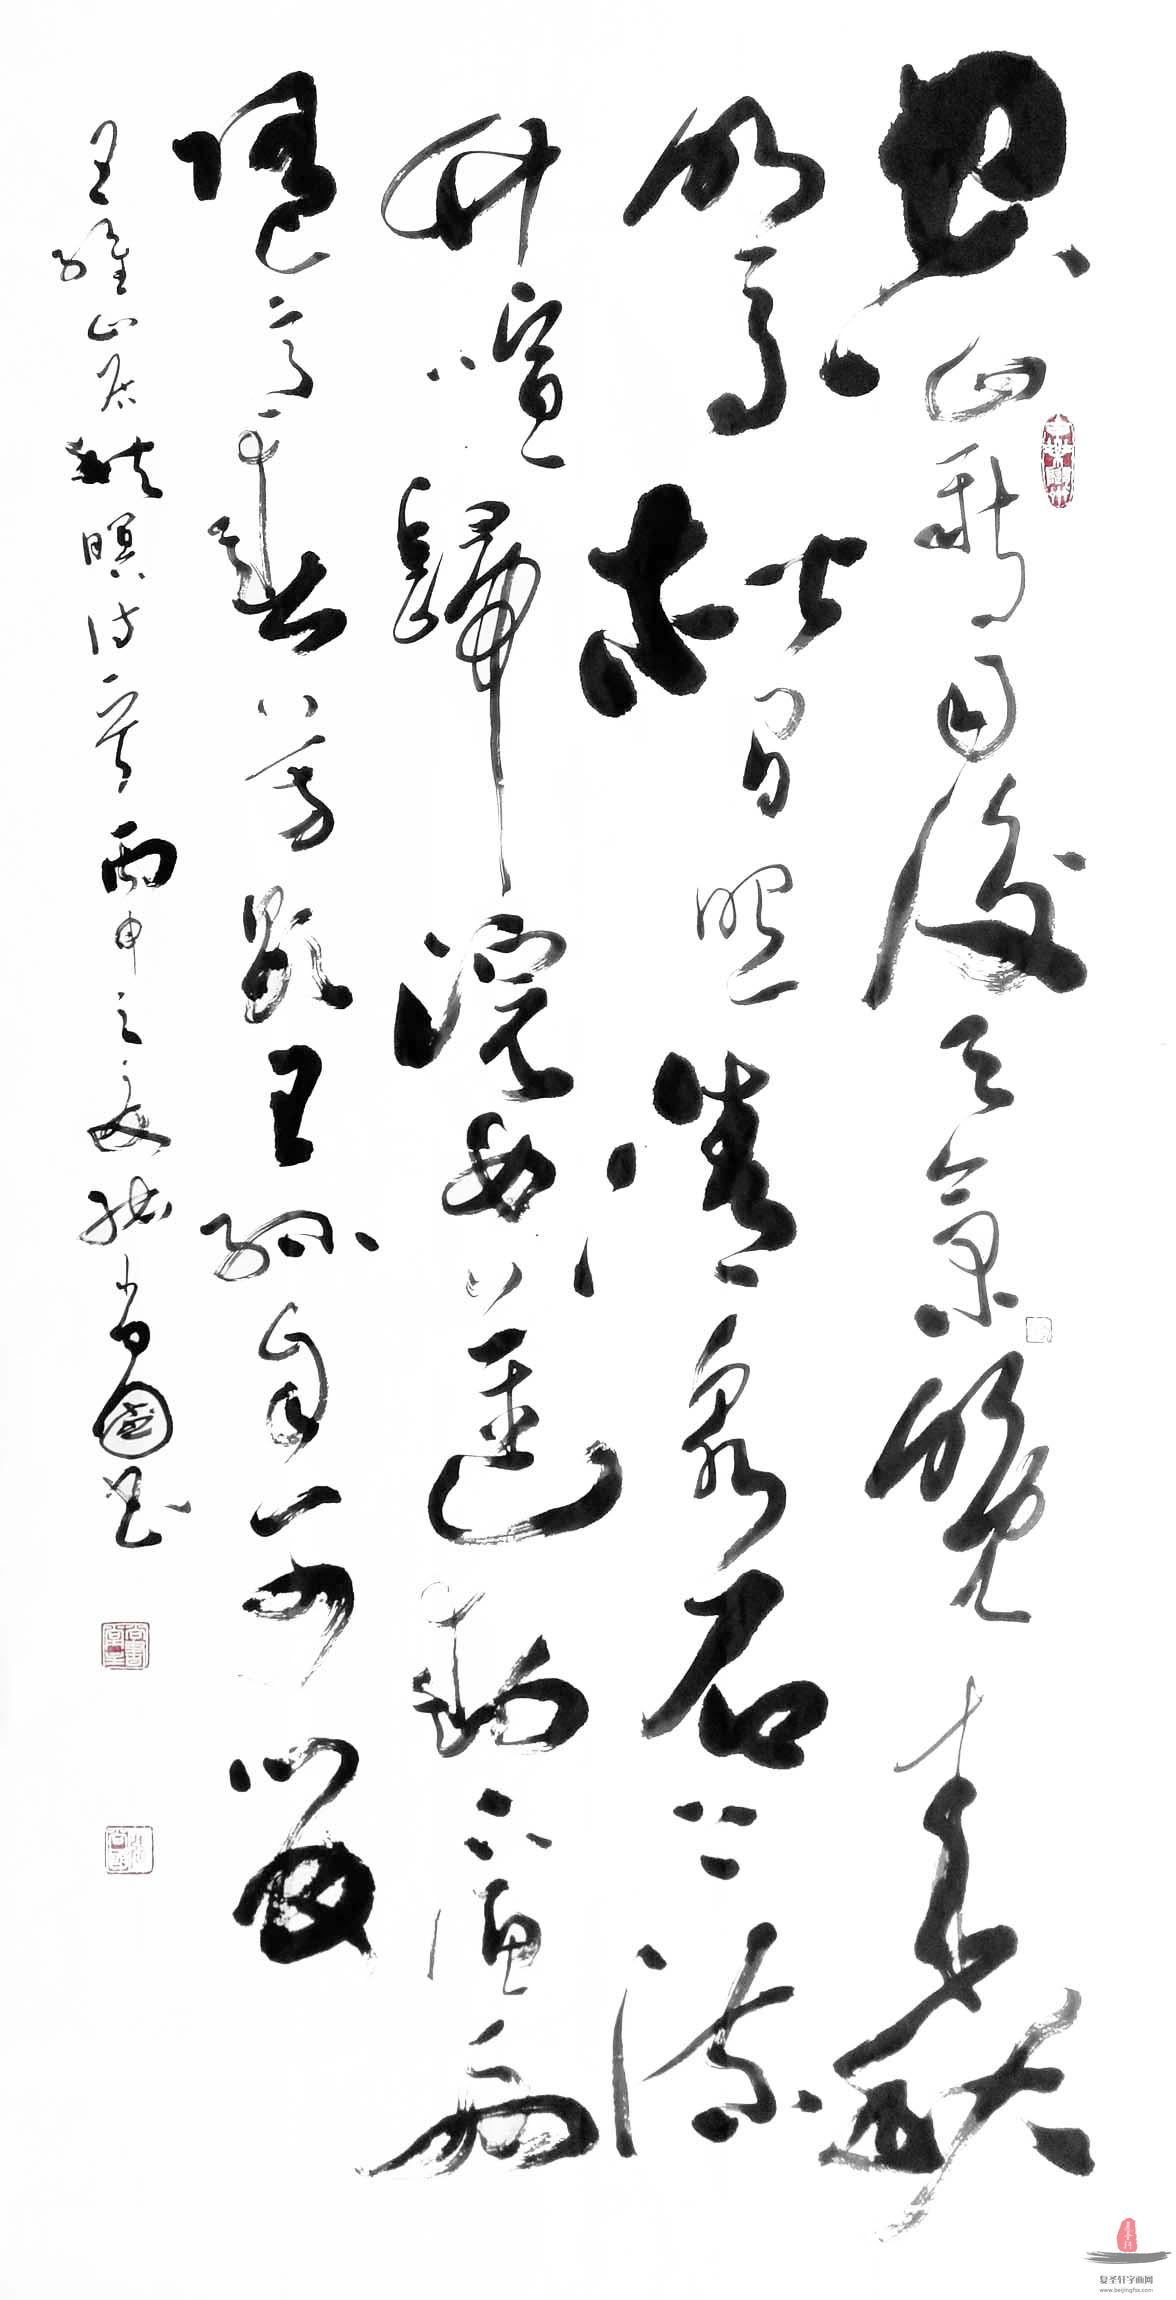 空山新雨後天氣晚來秋
明月松間照清泉石上流
竹喧歸浣女蓮動下漁舟
隨意春芳歇王孫自可留
王維山居秋暝诗一首丙申之夏尚國书
复圣轩字画网
www.beijingfsx.com